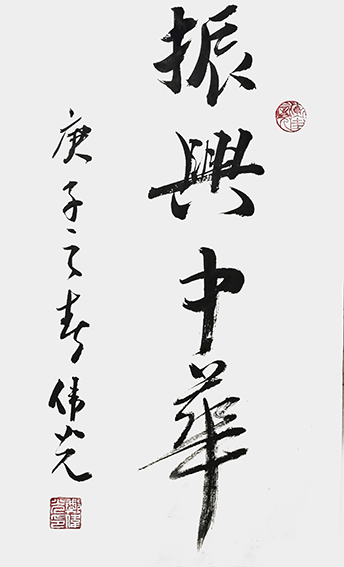 振興中華
庚子之春伟光